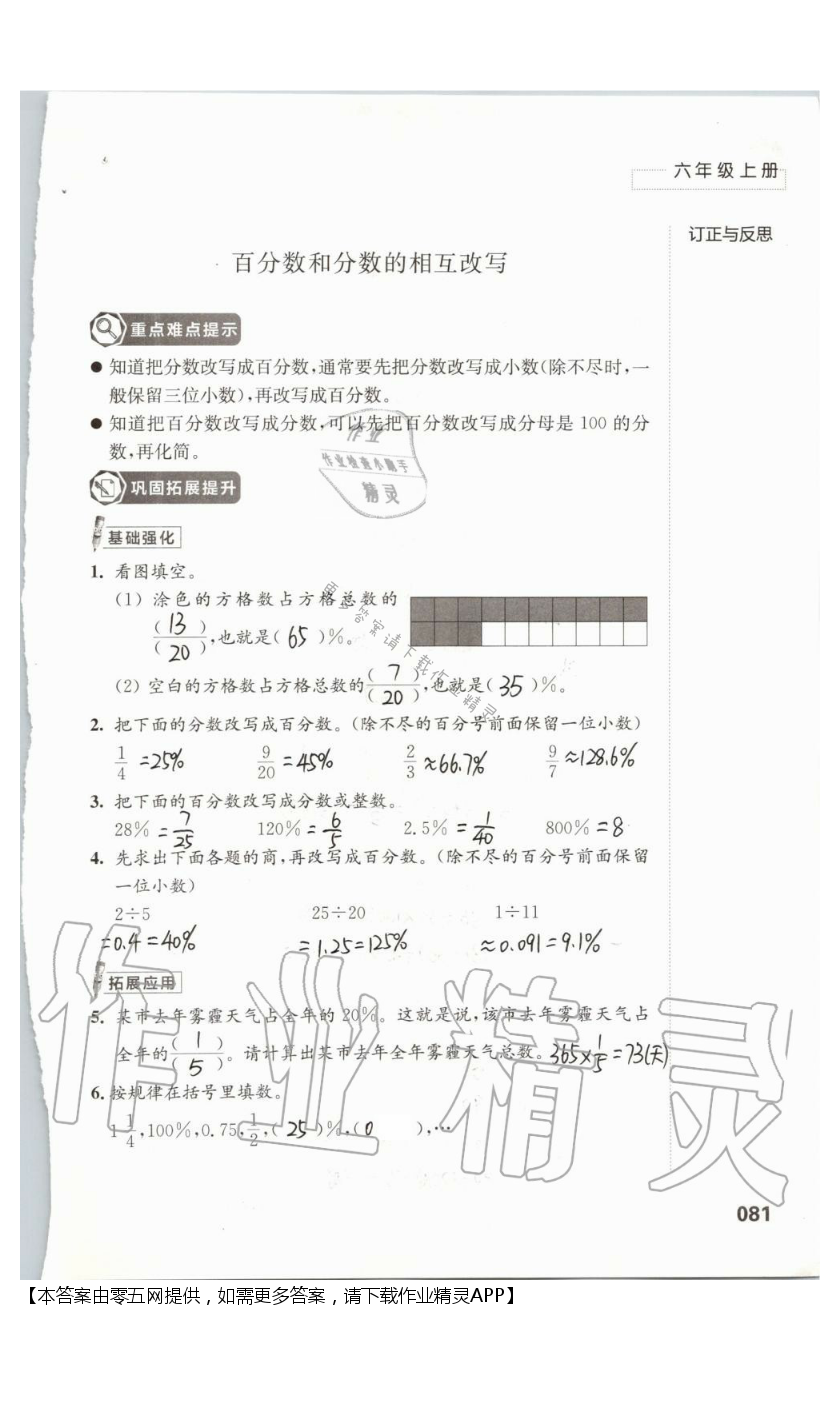 六年级上册
订正与反思
百分数和分数的相互改写
重点难点提示
● 知道把分数改写成百分数,通常要先把分数改写成小数(除不尽时,一
般保留三位小数),再改写成百分数。
● 知道把百分数改写成分数,可以先把百分数改写成分母是 100 的分
数,再化简。
作业
作业检查小助手
精灵
巩固拓展提升
基础强化
1. 看图填空。
(1) 涂色的方格数占方格总数的
(13)/(20),也就是(65)%。
(2) 空白的方格数占方格总数的(7)/(20),也就是(35)%。
更多答案请下载作业精灵
2. 把下面的分数改写成百分数。(除不尽的百分号前面保留一位小数)
1/4 =25% 9/20 =45% 2/3 ≈66.7% 9/7 ≈128.6%
3. 把下面的百分数改写成分数或整数。
28% =7/25 120% =6/5 2.5% =1/40 800% =8
4. 先求出下面各题的商,再改写成百分数。(除不尽的百分号前面保留
一位小数)
2÷5 25÷20 1÷11
=0.4=40% =1.25=125% ≈0.091=9.1%
拓展应用
5. 某市去年雾霾天气占全年的 20%。这就是说,该市去年雾霾天气占
全年的(1)/(5)。请计算出某市去年全年雾霾天气总数。365×1/5=73(天)
6. 按规律在括号里填数。
1 1/4,100%,0.75,1/2,(25)%,(0),…
作业精灵
081
【本答案由零五网提供，如需更多答案，请下载作业精灵APP】